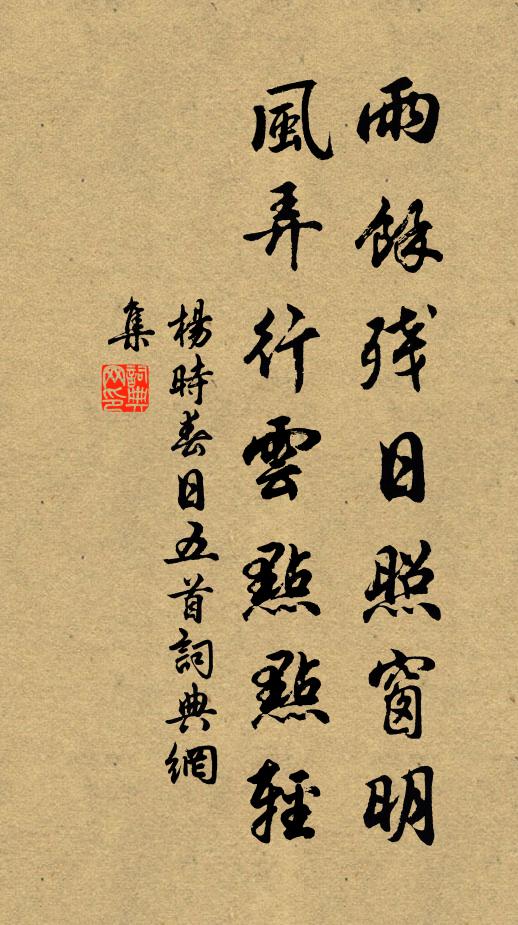 雨餘殘日照窗明
風弄行雲點點輕
楊時春日五首詞典網
集
詞典网印